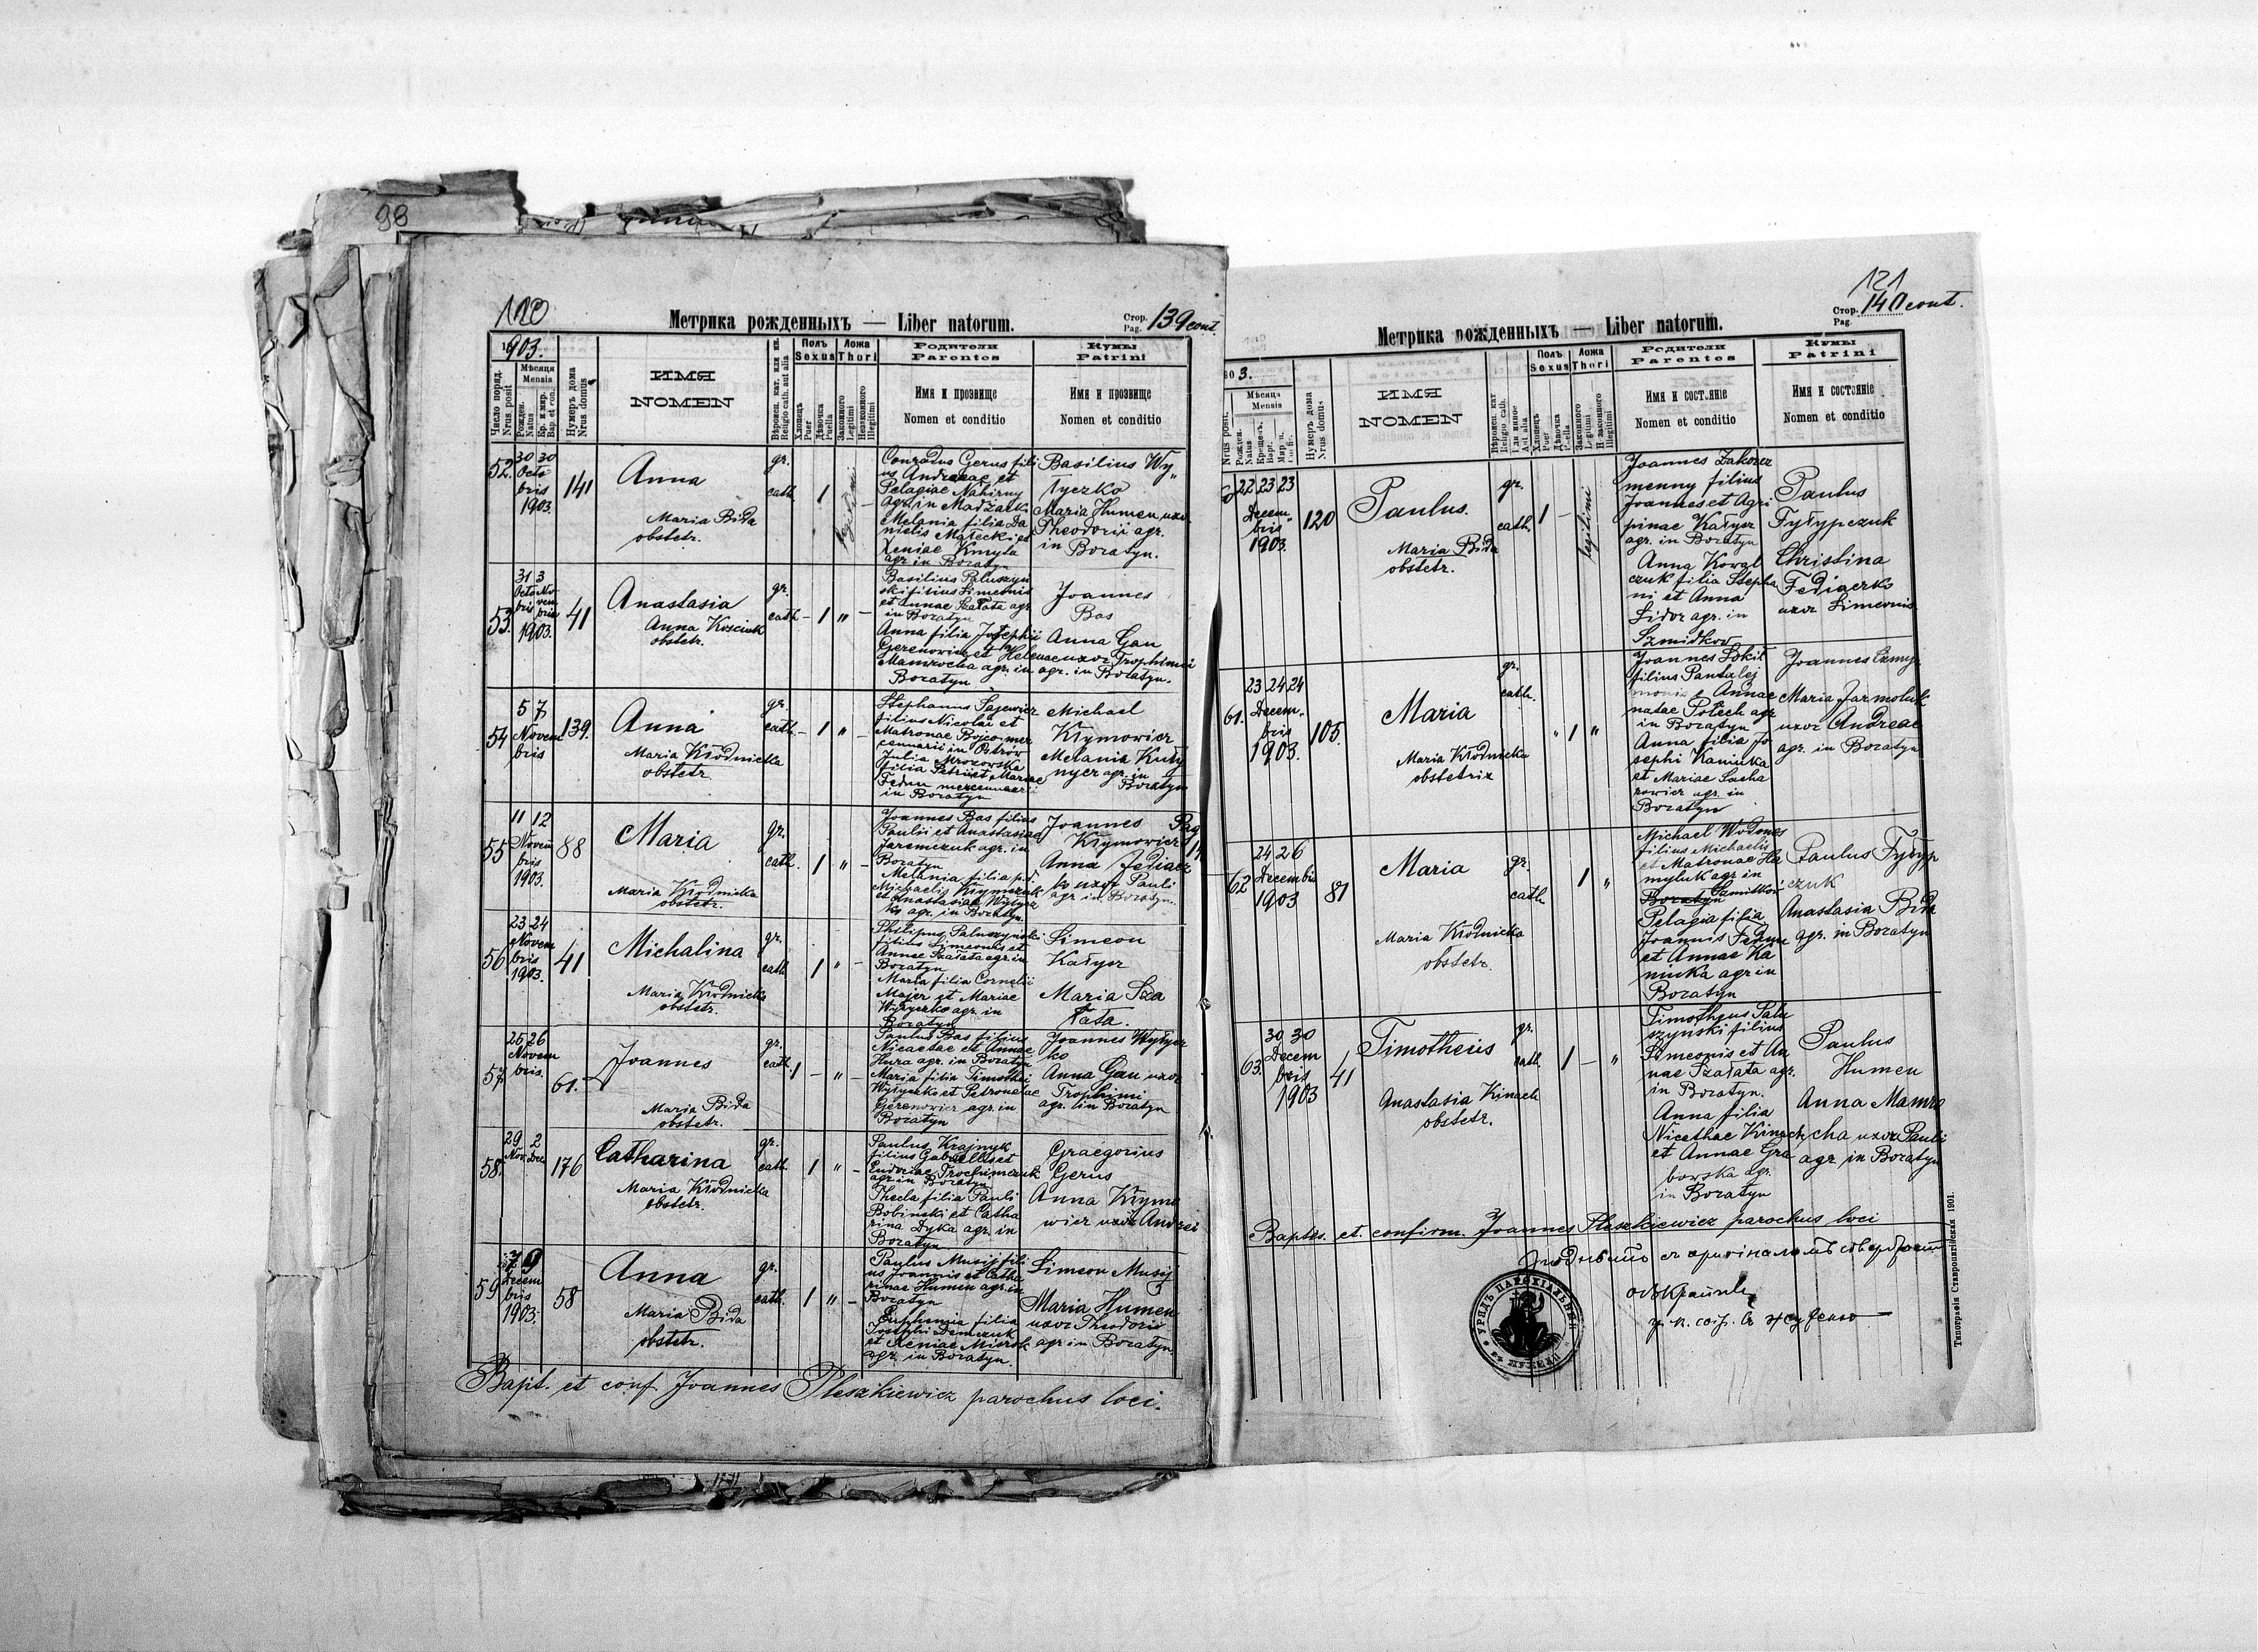 98
120
Метрика рожденныхъ — Liber natorum.
Стор. Pag. 139 cont.
1903.
Число поряд. Nrus posit
Мѣсяця Mensis
Рожден. Natus
Кр. и мир. Bap. et con.
Нумеръ дома Nrus domus
ИМЯ
NOMEN
Вѣроисп. кат. или ин. Religio cath. aut alia
Полъ
Sexus
Хлопець Puer
Дѣвочка Puella
Ложа
Thori
Законного Legitimi
Незаконного Illegitimi
Родители
Parentes
Имя и прозвище
Nomen et conditio
Кумы
Patrini
Имя и прозвище
Nomen et conditio
52.
30 30
Octo
bris
1903.
141
Anna
Maria Bida
obstetr.
gr.
cath.
1
legitimi
Conradus Gerus fili
us Andreae et
Pelagiae Nahirny
agr. in Madzałki
Melania filia Da
nielis Małecki et
Xeniae Kmyta
agr. in Boratyn
Basilius Wy
tyczko
Maria Humen uxor
Theodorii agr.
in Boratyn.
53.
31 3
Octo No
bris vem
bris
1903.
41
Anastasia
Anna Kosciuk
obstetr.
gr.
cath. – 1 "
Basilius Paluszyn
ski filius Simeonis
et Annae Szałata agr.
in Boratyn
Anna filia Josephi
Gerenowicz et Helenae
Mamrocha agr. in
Boratyn
Joannes
Bas
Anna Gau
uxor Trophimi
agr. in Boratyn.
54
5 7
Novem
bris
139.
Anna
Maria Kłodnicka
obstetr.
gr.
cath. – 1 " –
Stephanus Sajewicz
filius Nicolai et
Matronae Bojco mer
cennarii in Ostrów
Julia Mrozowska
filia Petri et Mariae
Fedun mercennarii
in Boratyn
Michael
Kłymowicz
Melania Kuty
nycz agr. in
Boratyn
55
11 12
Novem
bris
1903.
88
Maria
Maria Kłodnicka
obstetr.
gr.
cath. 1 " –
Joannes Bas filius
Paulii et Anastasiae
Jaremczuk agr. in
Boratyn
Melania filia p.d.
Michaelis Kłymczuk
et Anastasiae Wytycz
ko agr. in Boratyn.
Joannes
Kłymowicz
Anna Fediacz
ko uxor Pauli
agr. in Boratyn.
56
23 24
Novem
bris
1903.
41
Michalina
Maria Kłodnicka
obstetr.
gr.
cath 1 " –
Philipus Paluszynski
filius Simeonis et
Annae Szałata agr. in
Boratyn
Maria filia Cornelii
Majer et Mariae
Wytyczko agr. in
Boratyn
Simeon
Kałycz
Maria Sza
łata.
57
25 26
Novem
bris.
61.
Joannes
Maria Bida
obstetr.
gr.
cath. 1 – " –
Paulus Bas filius
Nicaetae et Annae
Hura agr. in Boratyn
Maria filia Timothei
Wytyczko et Petronelae
Gerenowicz agr. in
Boratyn
Joannes Wytycz
ko
Anna Gau uxor
Trophimi
agr. in Boratyn
58.
29 2
Nov. Dec.
176
Catharina
Maria Kłodnicka
obstetr.
gr.
cath 1 " –
Paulus Krajnyk
filius Gabrielis et
Eudociae Trochimczuk
agr. in Boratyn
Thecla filia Pauli
Bobinski et Catha
rina Dyka agr. in
Boratyn
Graegorius
Gerus
Anna Kłymo
wicz uxor Andrei
59
7 9
Decem
bris
1903.
58
Anna
Maria Bida
obstetr.
gr.
cath. 1 " –
Paulus Musij fili
us Joannis et Catha
rinae Humen agr. in
Boratyn
Euphemia filia
Josephi Demczuk
et Xeniae
agr. in Boratyn.
Simeon Musij
Maria Humen
uxor Theodorii
agr. in Boratyn.
Bapt. et conf. Joannes Pleszkiewicz parochus loci.
121
Метрика рожденныхъ — Liber natorum.
Стор. Pag. 140 cont.
903.
Nrus posit.
Мѣсяця
Mensis
Рожден. Natus
Крещенъ. Bapt.
Мир и. Confir.
Нумеръ дома Nrus domus
ИМЯ
NOMEN
Вѣроисп. кат Religio cath. или инное Aut alia
Полъ
Sexus
Хлопець Puer
Дѣвочка Puella
Ложа
Thori
Законного Legitimi
Незаконного Illegitimi
Родители
Parentes
Имя и состояніе
Nomen et conditio
Кумы
Patrini
Имя и состояніе
Nomen et conditio
22 23 23
Decem
bris
1903.
120
Paulus.
Maria Bida
obstetr.
gr.
cath. 1 –
legitimi
Joannes Zakorcz
menny filius
Joannes et Agri
pinae Kałycz
agr. in Boratyn
Anna Kowal
czuk filia Stepha
ni et Anna
Sidor agr. in
Szmidków
Paulus
Tyłypczuk
Christina
Fediaczko
uxor Simeonis
61.
23 24 24
Decem
bris
1903.
105.
Maria
Maria Kłodnicka
obstetrix
gr.
cath.
" 1 "
Joannes Sokil
filius Pantalej
monis e Annae
natae Polech agr
in Boratyn
Anna filia Jo
sephi Kaminka
et Mariae Sacha
rowicz agr. in
Boratyn
Joannes
Maria Jarmoluk
uxor Andreae
agr. in Boratyn
62
24 26
Decembris
1903
81
Maria
Maria Kłodnicka
obstetr.
gr.
cath. 1 "
Michael Wodones
filius Michaelis
et Matronae Ha
myluk agr in
Boratyn
Pelagia filia
Joannis Fedun
et Annae Ka
minka agr in
Boratyn
Paulus Tyłyp
czuk
Anastasia Bida
agr. in Boratyn
63.
30 30
Decem
bris
1903
41
Timotheus
Anastasia Kinach
obstetr.
gr.
cath. 1 – "
Timotheus Palu
szynski filius
Simeonis et An
nae Szałata agr.
in Boratyn.
Anna filia
Nicethae Kinach
et Annae Gra
bowska agr.
in Boratyn
Paulus
Humen
Anna Mamro
cha uxor Pauli
agr. in Boratyn
Baptis. et. confirm. Joannes Pleszkiewicz parochus loci
Типографія Ставропигійская 1901.